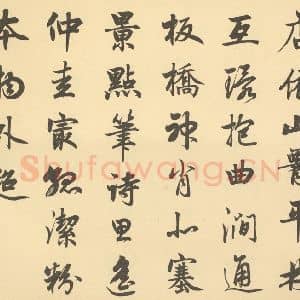 依山麓平林
互抱曲澗通
板橋神肖小寨
景點筆詩思
仲圭寂潔粉
本物外超
Shufawang.CN